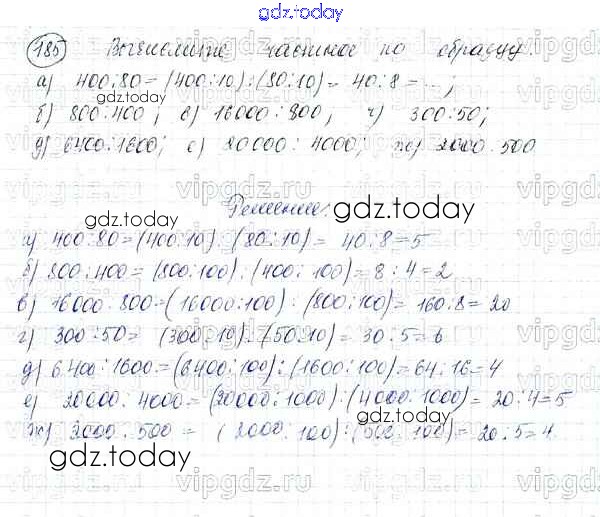 gdz.today
185 Вычислите частное по образцу:
а) 400:80=(400:10):(80:10)=40:8=...;
gdz.today
б) 800:400; в) 16000:800, г) 300:50;
д) 6400:1600; е) 20000:4000; ж) 2000:500
Решение:
gdz.today gdz.today
а) 400:80=(400:10):(80:10)=40:8=5
б) 800:400=(800:100):(400:100)=8:4=2
в) 16000:800=(16000:100):(800:100)=160:8=20
г) 300:50=(300:10):(50:10)=30:5=6
д) 6400:1600=(6400:100):(1600:100)=64:16=4
е) 20000:4000=(20000:1000):(4000:1000)=20:4=5
gdz.today
ж) 2000:500=(2000:100):(500:100)=20:5=4
gdz.today
vipgdz.ru